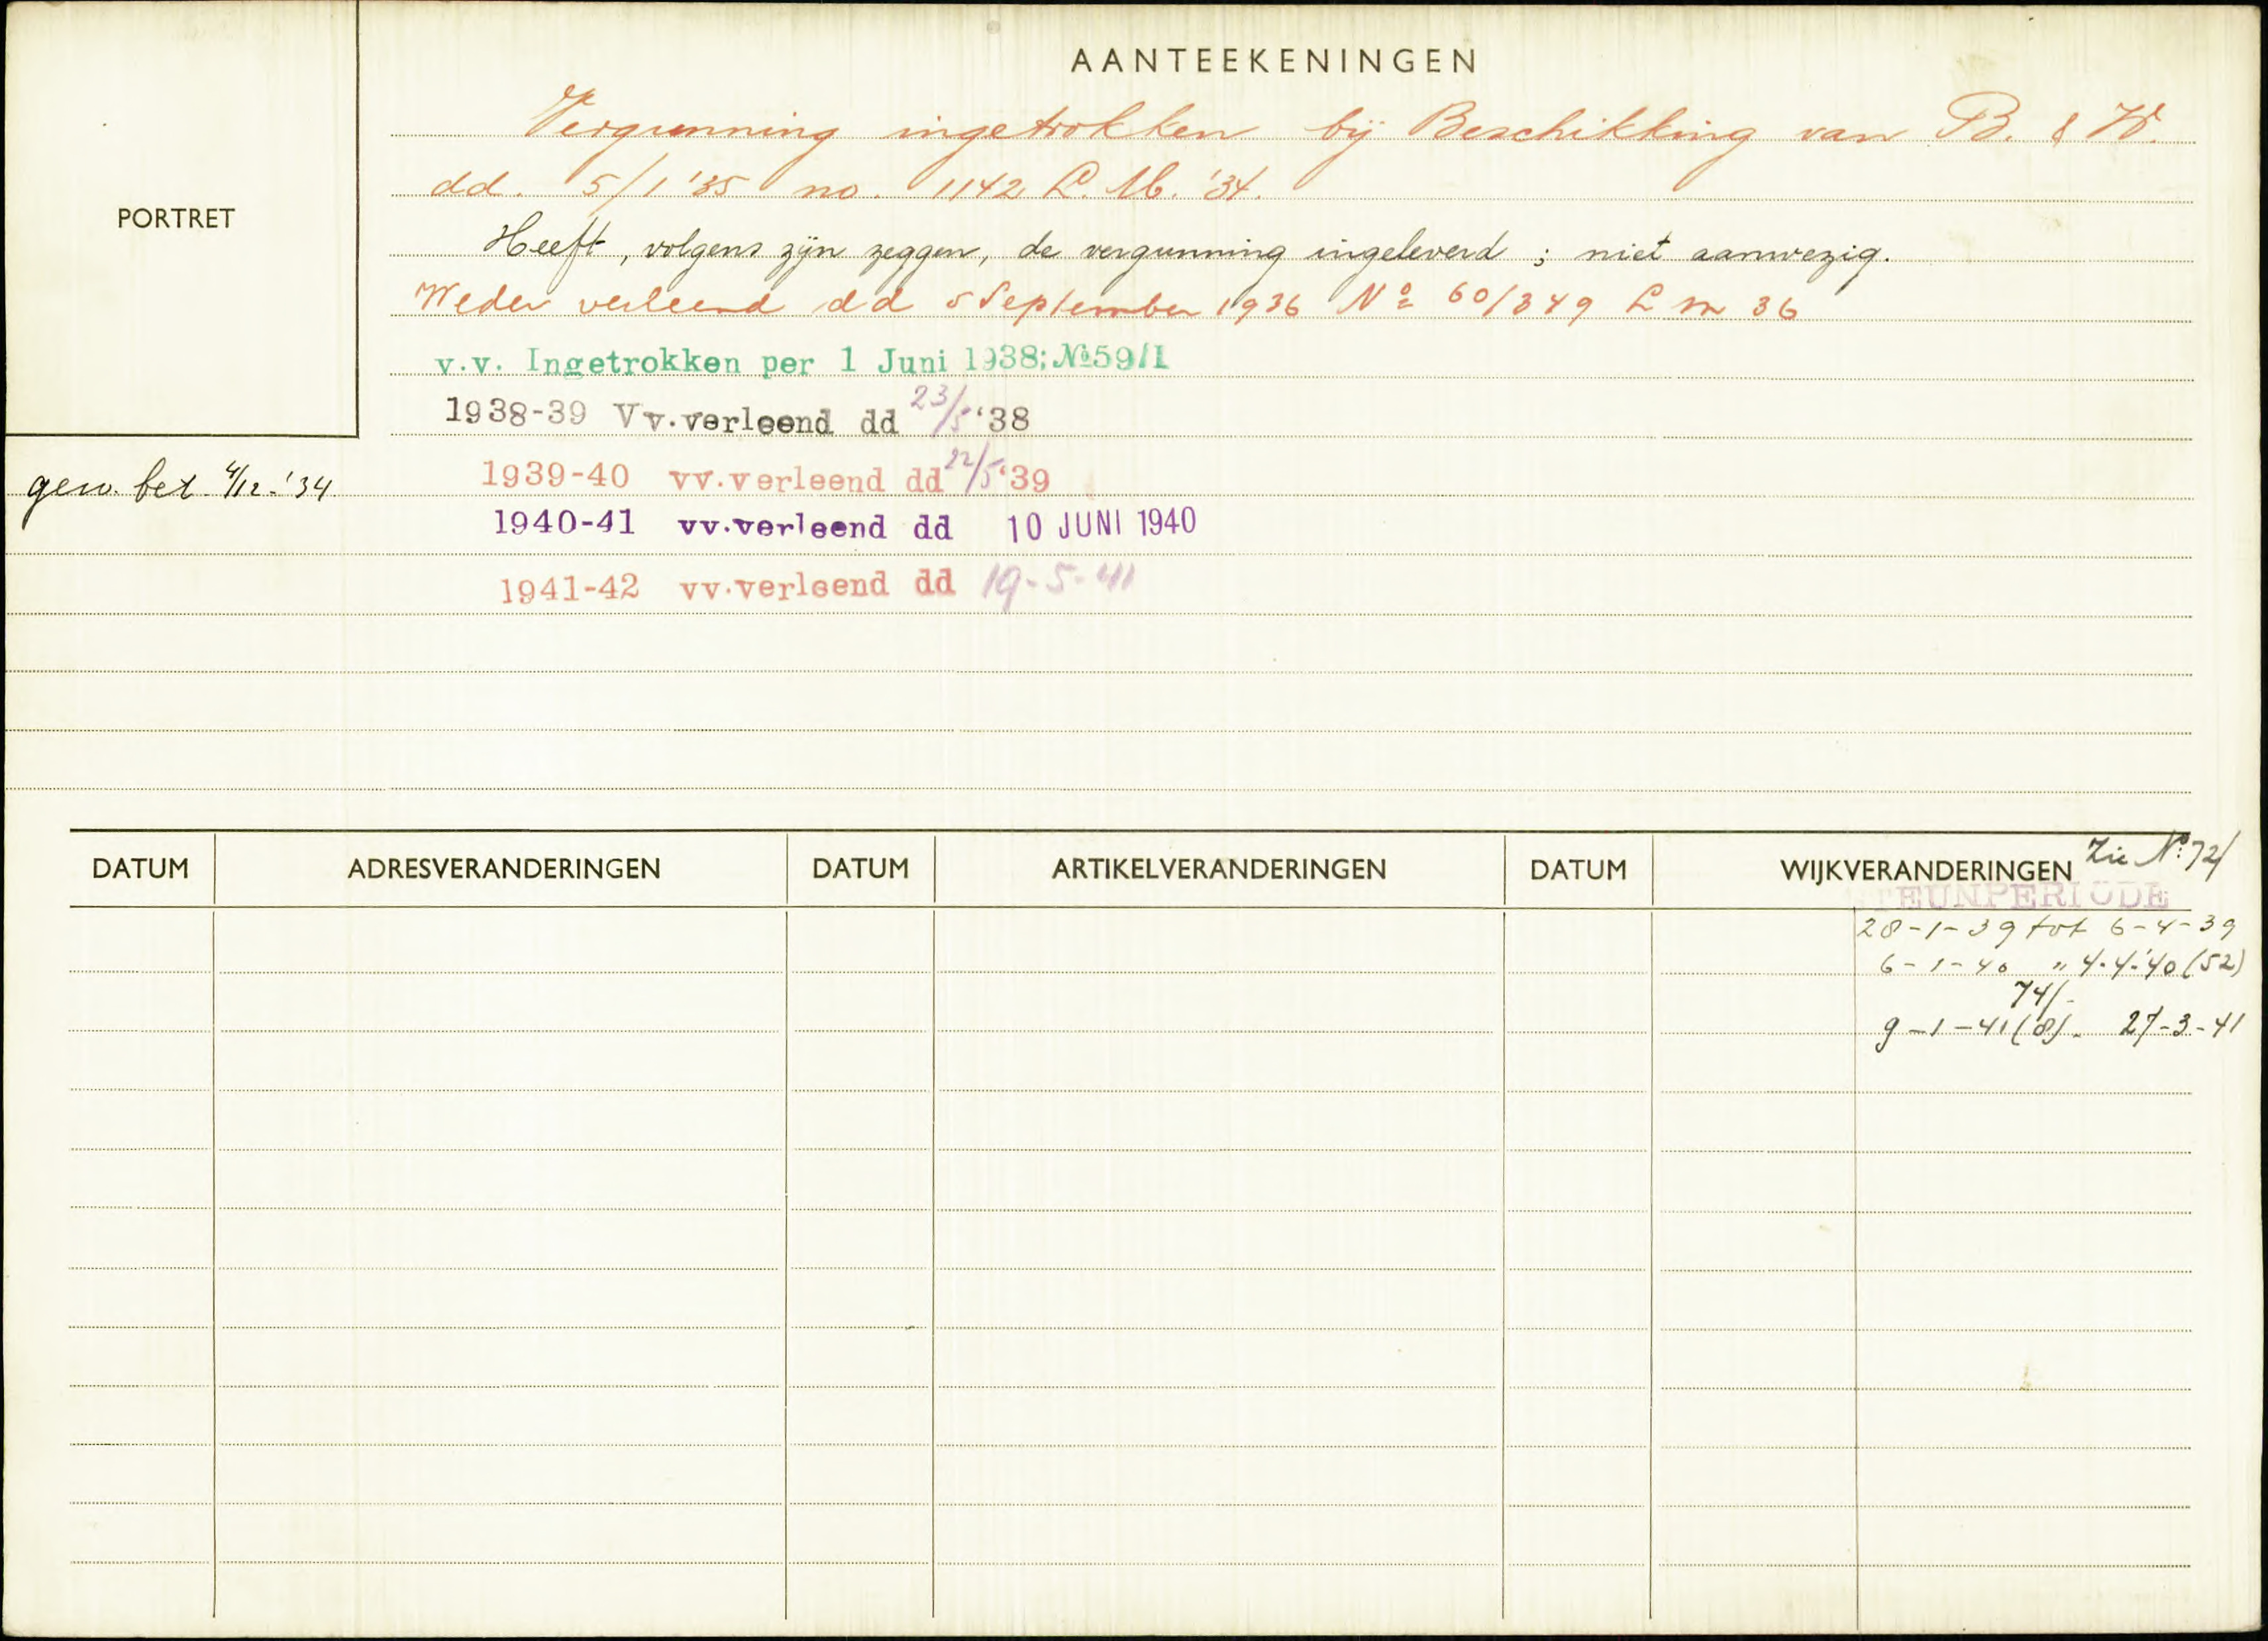 AANTEEKENINGEN
Vergunning ingetrokken bij Beschikking van B. & W.
dd. 5/1 '35 no. 1142 L. M. '34.
PORTRET
Heeft, volgens zijn zeggen, de vergunning ingeleverd ; niet aanwezig.
Weder verleend dd 5 September 1936 No 60/349 L M 36
v.v. Ingetrokken per 1 Juni 1938; № 59/1
1938-39 Vv.verleend dd 23/5 '38
gew. bet. 4/12-'34
1939-40 vv.verleend dd 22/5 '39
1940-41 vv.verleend dd 10 JUNI 1940
1941-42 vv.verleend dd 19-5-'41
Zie No: 72/
DATUM ADRESVERANDERINGEN DATUM ARTIKELVERANDERINGEN DATUM WIJKVERANDERINGEN
STEUNPERIODE
28-1-39 tot 6-4-39
6-1-40 " 4-4-'40 (52)
74/-
9-1-41 (8). 27-3-41